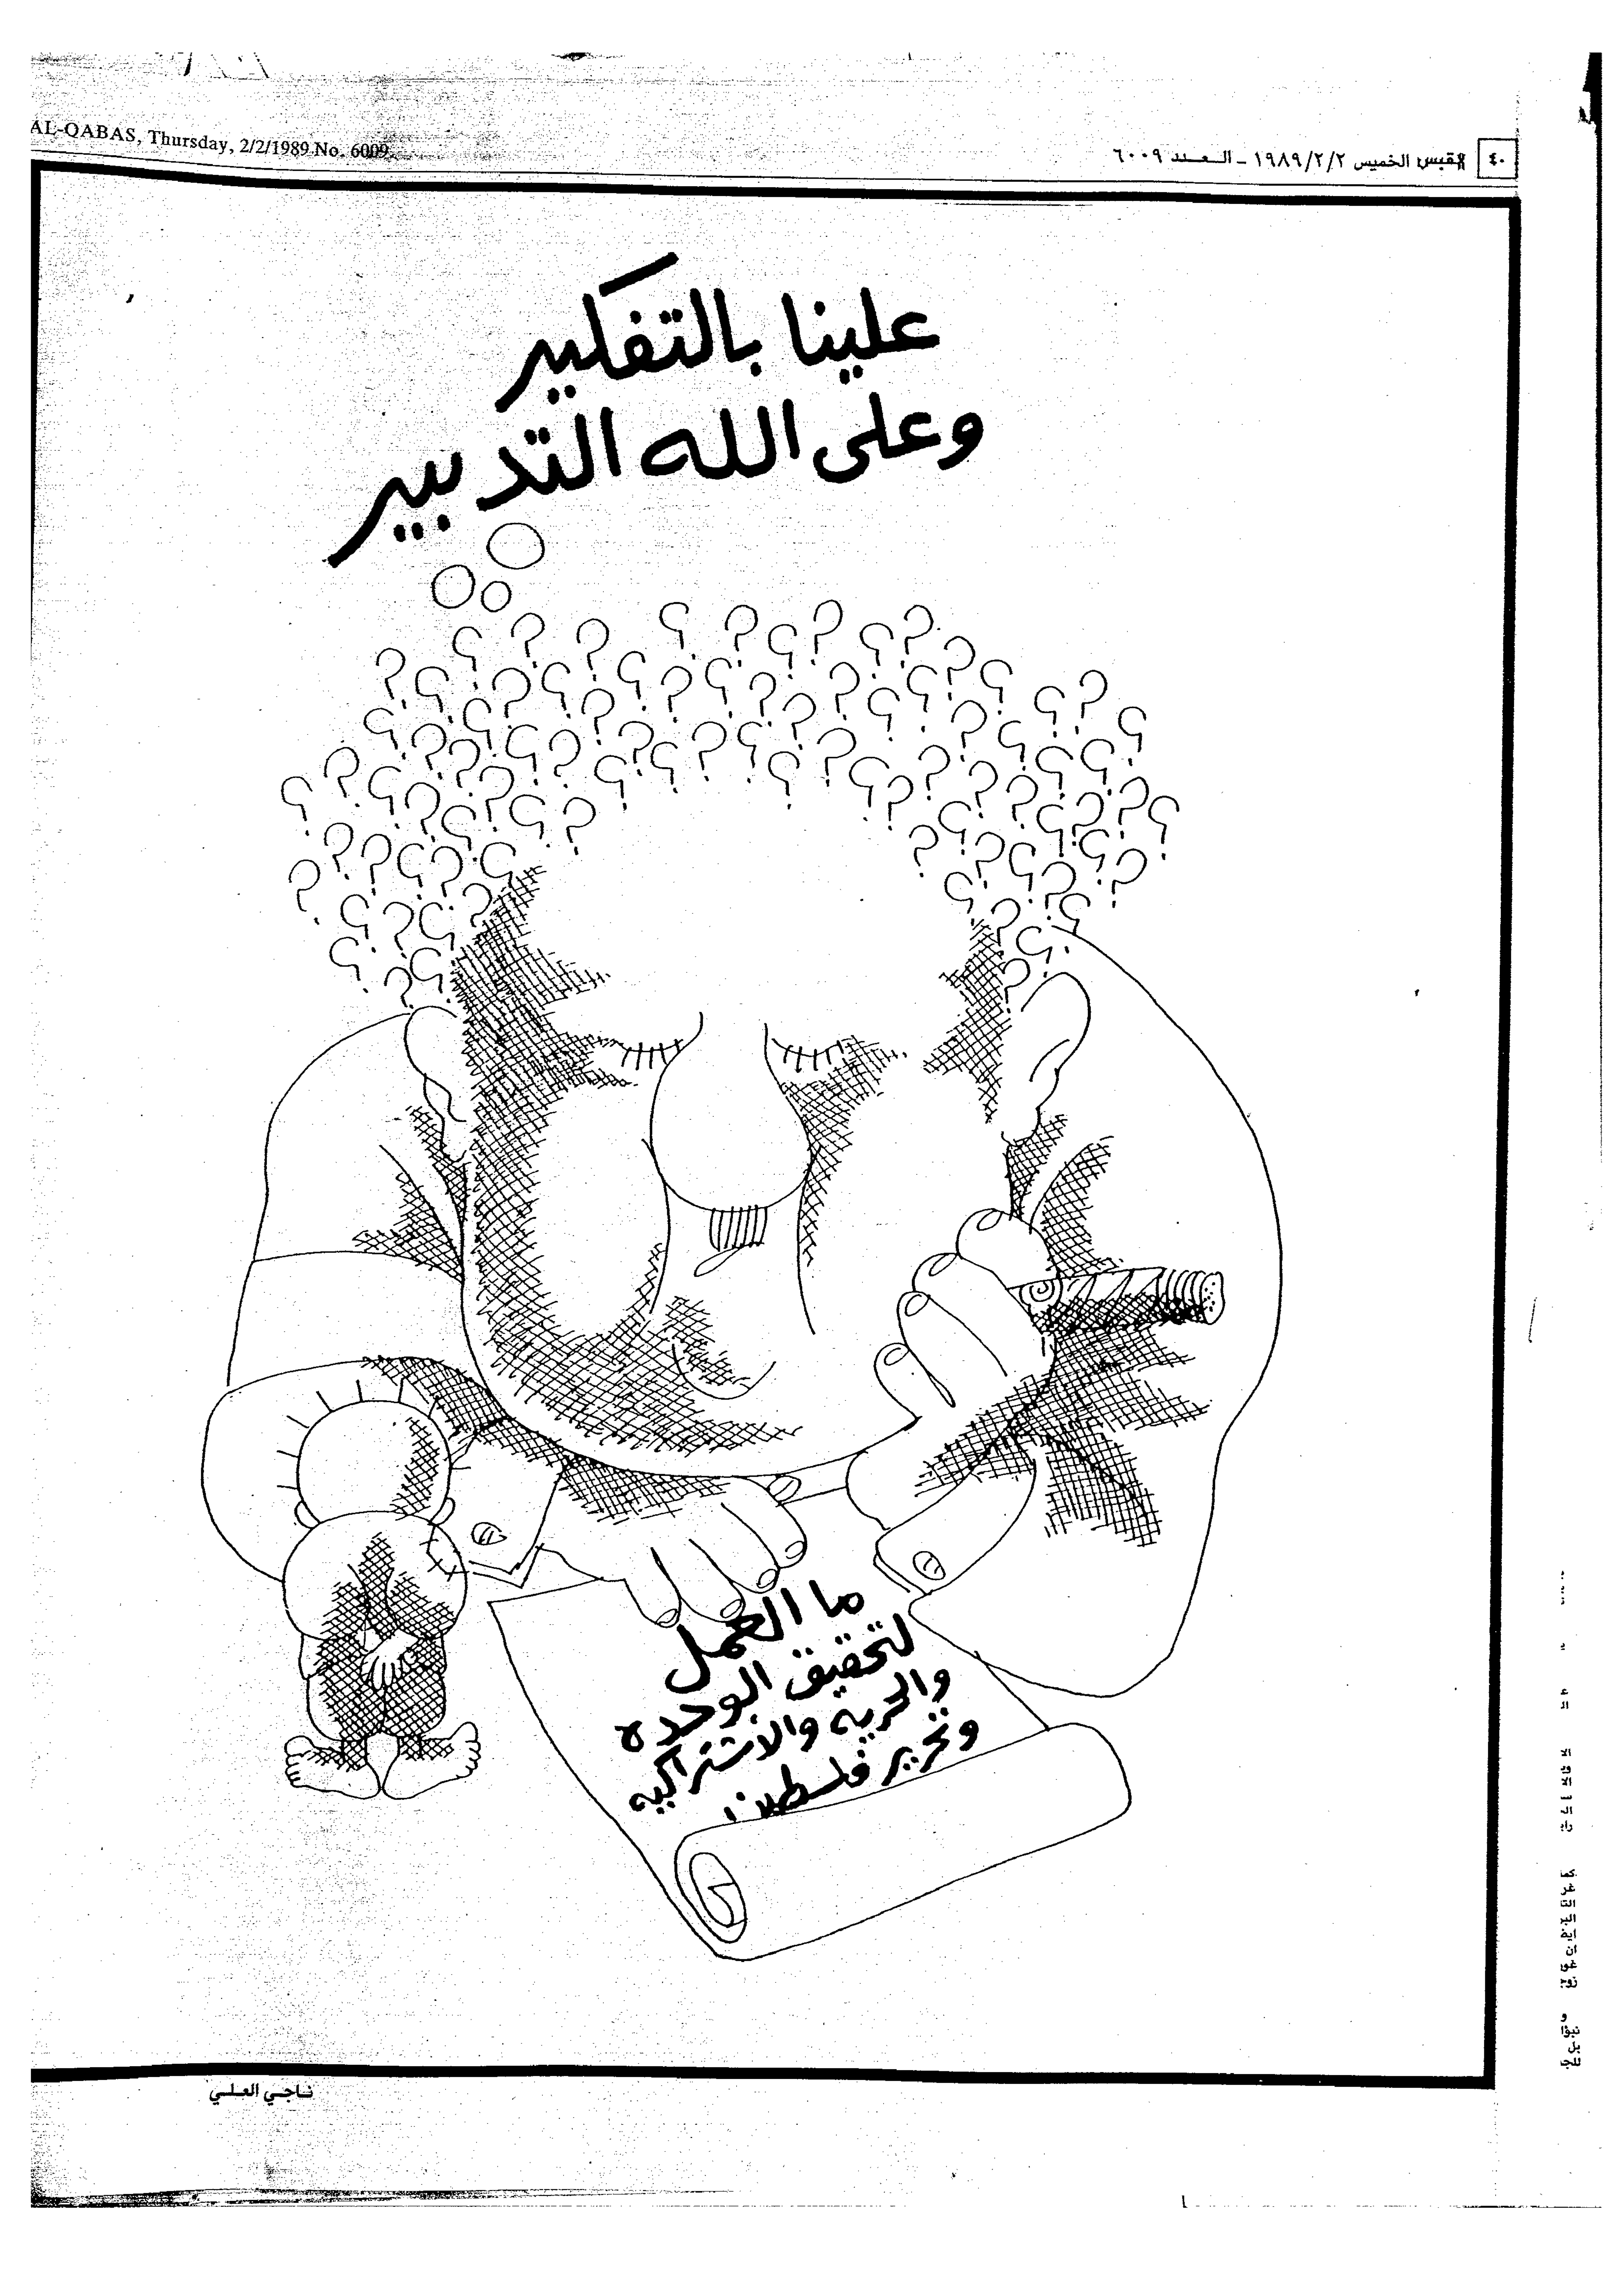 AL-QABAS, Thursday, 2/2/1989 No. 6009
٤٠
القبس الخميس ١٩٨٩/٢/٢ - العدد ٦٠٠٩
علينا بالتفكير
وعلى الله التدبير
ما العمل
لتحقيق الوحده
والحريه والاشتراكيه
وتحرير فلسطين
ناجي العلي